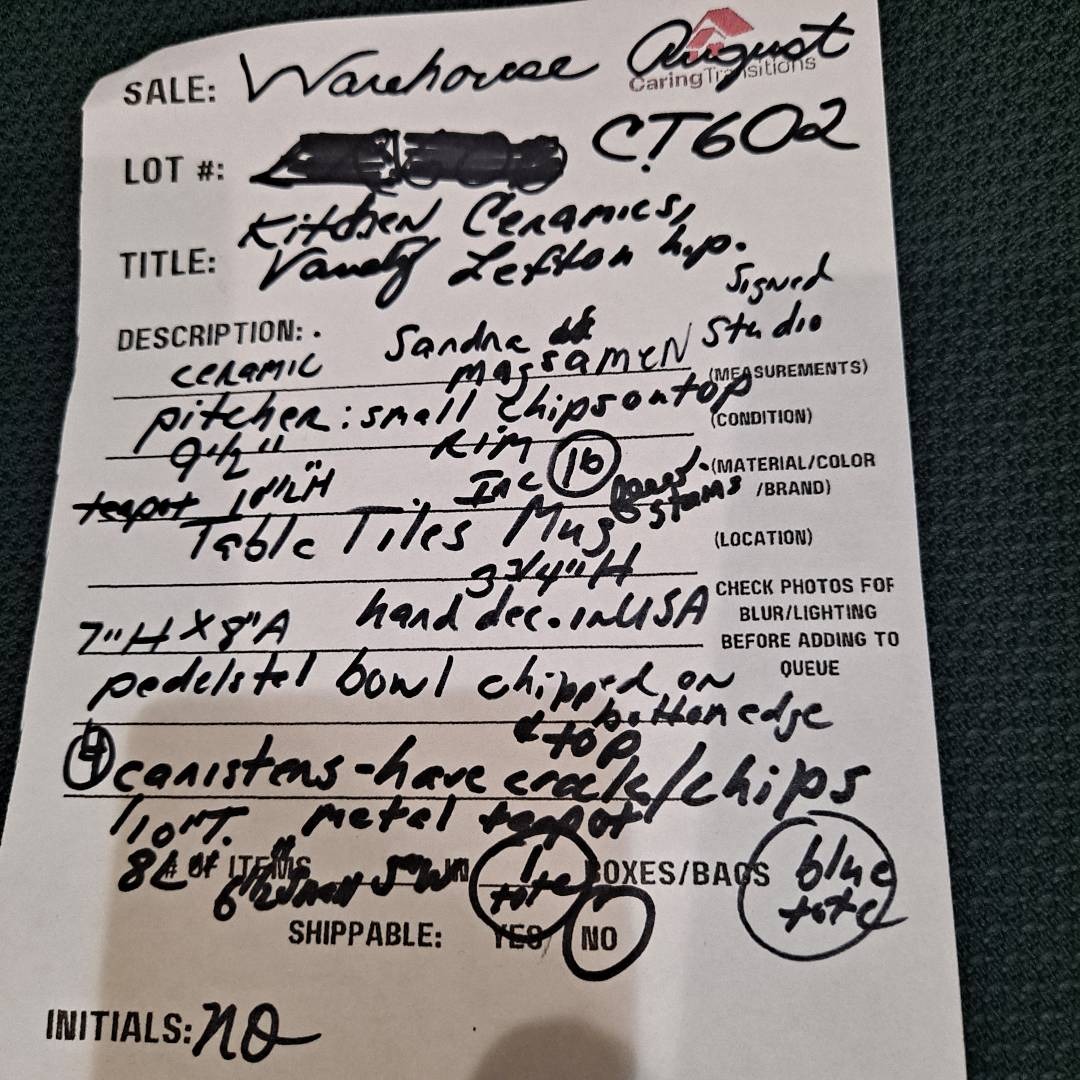 SALE: Warehouse August
CaringTransitions
LOT #: CT602
Kitchen Ceramics,
TITLE: Vandy Lefton hyp.
Signed
DESCRIPTION: . Sandra Studio
ceramic Massamen (MEASUREMENTS)
pitcher: small chips on top (CONDITION)
9 1/2" Rim
teapot INC 16 (MATERIAL/COLOR
/BRAND)
Table Tiles Mug (LOCATION)
3 3/4" H
7" H X 8" A hand dec. in USA CHECK PHOTOS FOR
BLUR/LIGHTING
BEFORE ADDING TO
QUEUE
pedelstel bowl chipped on
bottom edge
& top
4 canisters - have crack/chips
10" T. metal teapot
# OF ITEMS 6 1/2 small 5" W IN 1 tote BOXES/BAGS blue tote
SHIPPABLE: YES/ NO
INITIALS: NO